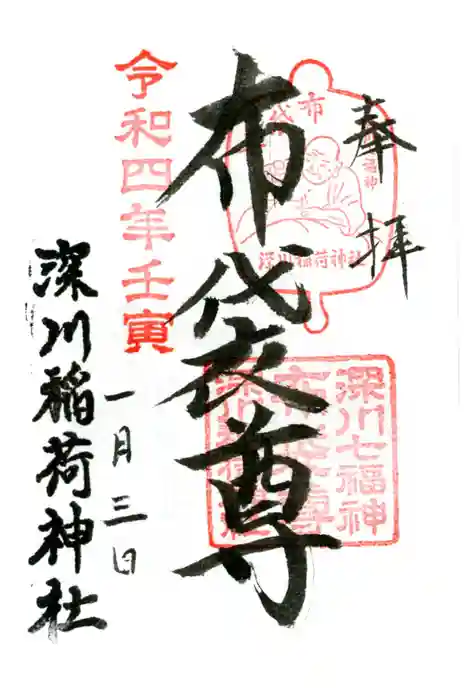 奉拝
布袋尊
令和四年壬寅
一月三日
深川稲荷神社
布袋
深川稲荷神社
深川七福神
布袋尊
深川稲荷神社